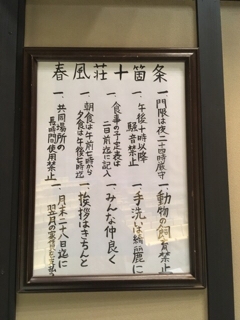 春風荘十箇条
一、門限は夜二十四時厳守
一、午後十時以降
騒音禁止
一、食事の予定表は
二日前迄に記入
一、朝食は午前七時から
夕食は午後七時迄
一、共同場所の
長時間使用禁止
一、動物の飼育禁止
一、手洗いは綺麗に
一、みんな仲良く
一、挨拶はきちんと
一、月末二十八日迄に
翌月の家賃を支払う